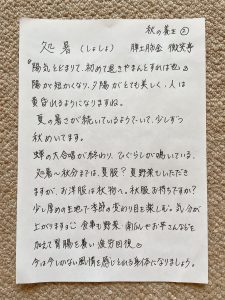 秋の養生②
処暑(しょしょ)
陽気とどまりて、初めて退きやまんとすれば也。
陽が短かくなり、夕陽がとても美しく、人は
黄昏れるようになりますね。
夏の暑さが続いているようでいて、少しずつ
秋めいてます。
蝉の大合唱が終わり、ひぐらしが鳴いている。
処暑〜秋分までは、夏服?夏野菜もいただき
ますが、お洋服は秋物へ。秋服お持ちですか?
少し厚めの生地で季節の変わり目を楽しむ。気分が
上がりますよ 食事も野菜 南瓜やお芋さんなどを
加えて胃腸を養い疲労回復。
今は今しかない風情を感じとれる身体になりましょう。